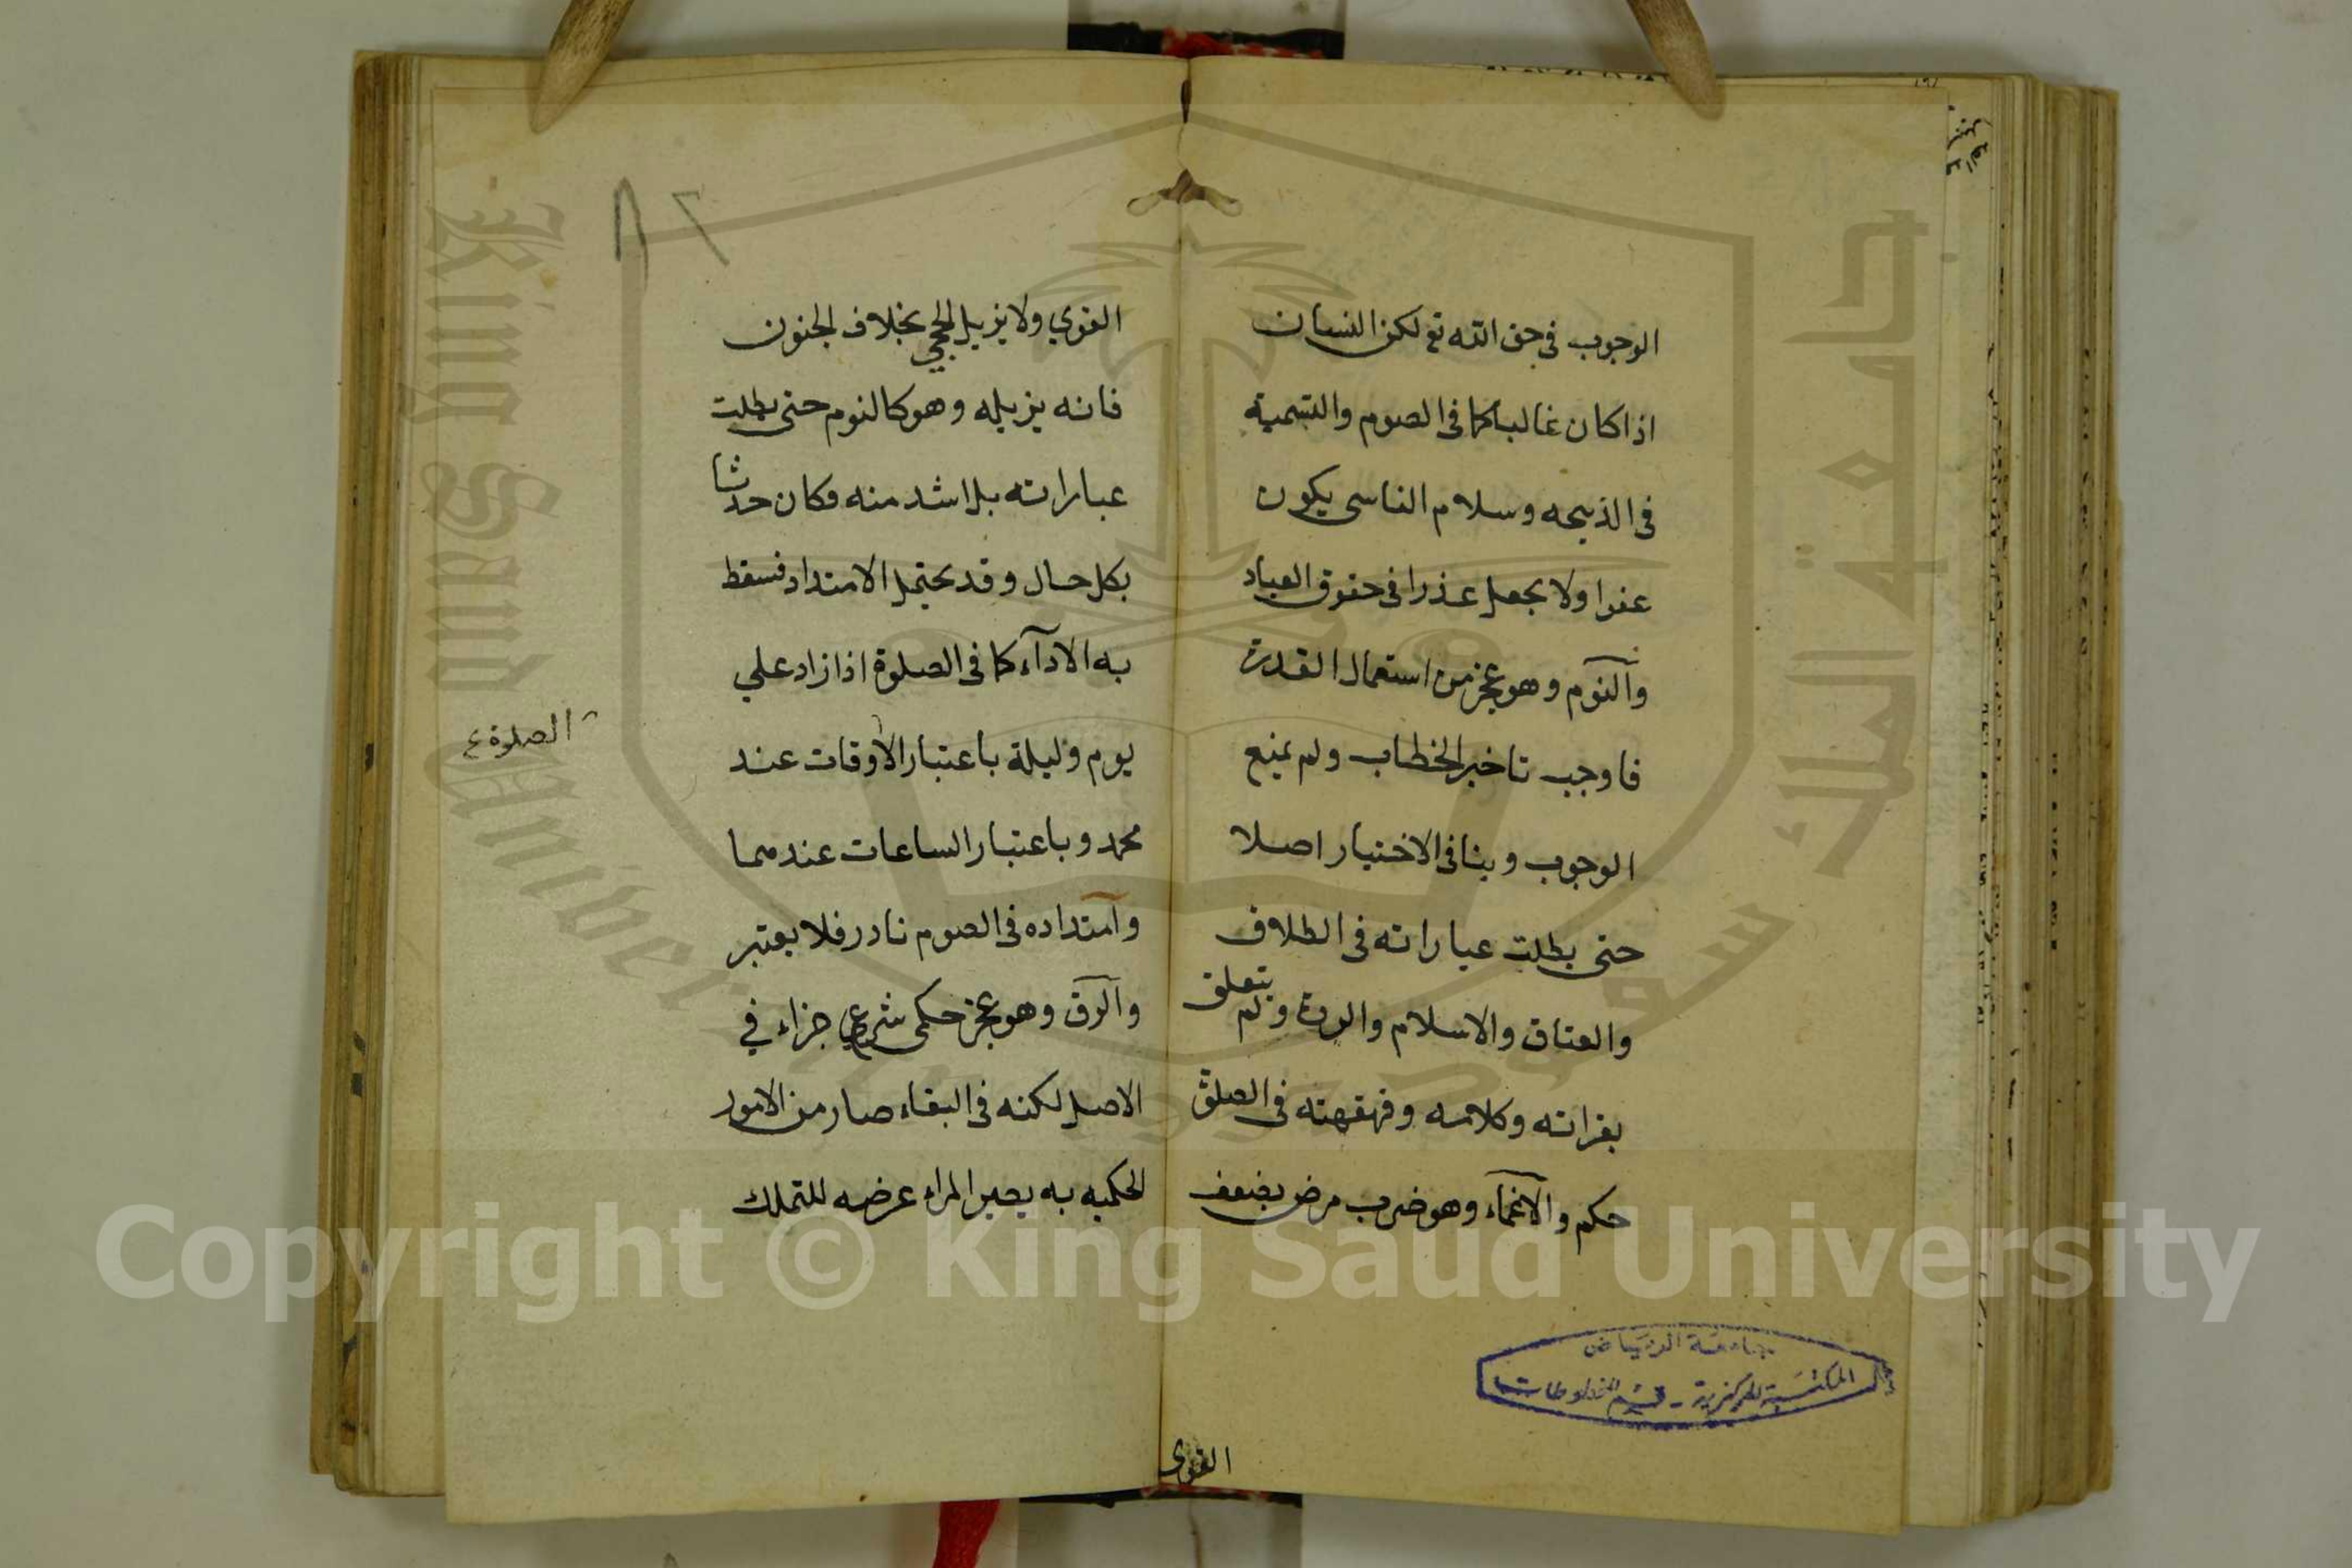 الوجوب في حق الله تع لكن النسيان
اذا كان غالبا كما في الصوم والتسمية
في الذبيحه وسلام الناسي يكون
عفوا ولا يجعل عذرا في حقوق العباد
والنوم وهو عجز من استعمال القدرة
فاوجب تاخير الخطاب ولم يمنع
الوجوب وينافي الاختيار اصلا
حتى بطلت عباراته في الطلاق
والعتاق والاسلام والردة ولم يتعلق
بقراته وكلامه وقهقهته في الصلوة
حكم والاغماء وهو ضرب مرض يضعف
القوى
جامعة الرياض
المكتبة المركزية - قسم المخطوطات
٨٢
القوي ولا يزيل الحجى بخلاف الجنون
فانه يزيله وهو كالنوم حتى بطلت
عباراته بل اشد منه فكان حدثا
بكل حال وقد يحتمل الامتداد فسقط
به الاداء كما في الصلوة اذا زاد علي
يوم وليلة باعتبار الاوقات عند
الصلوة
محمد وباعتبار الساعات عندهما
وامتداده في الصوم نادر فلا يعتبر
والرق وهو عجز حكمى شرع جزاء في
الاصل لكنه في البقاء صار من الامور
الحكميه به يصير المراء عرضه للتملك
جامعة الملك سعود
King Saud University
Copyright © King Saud University